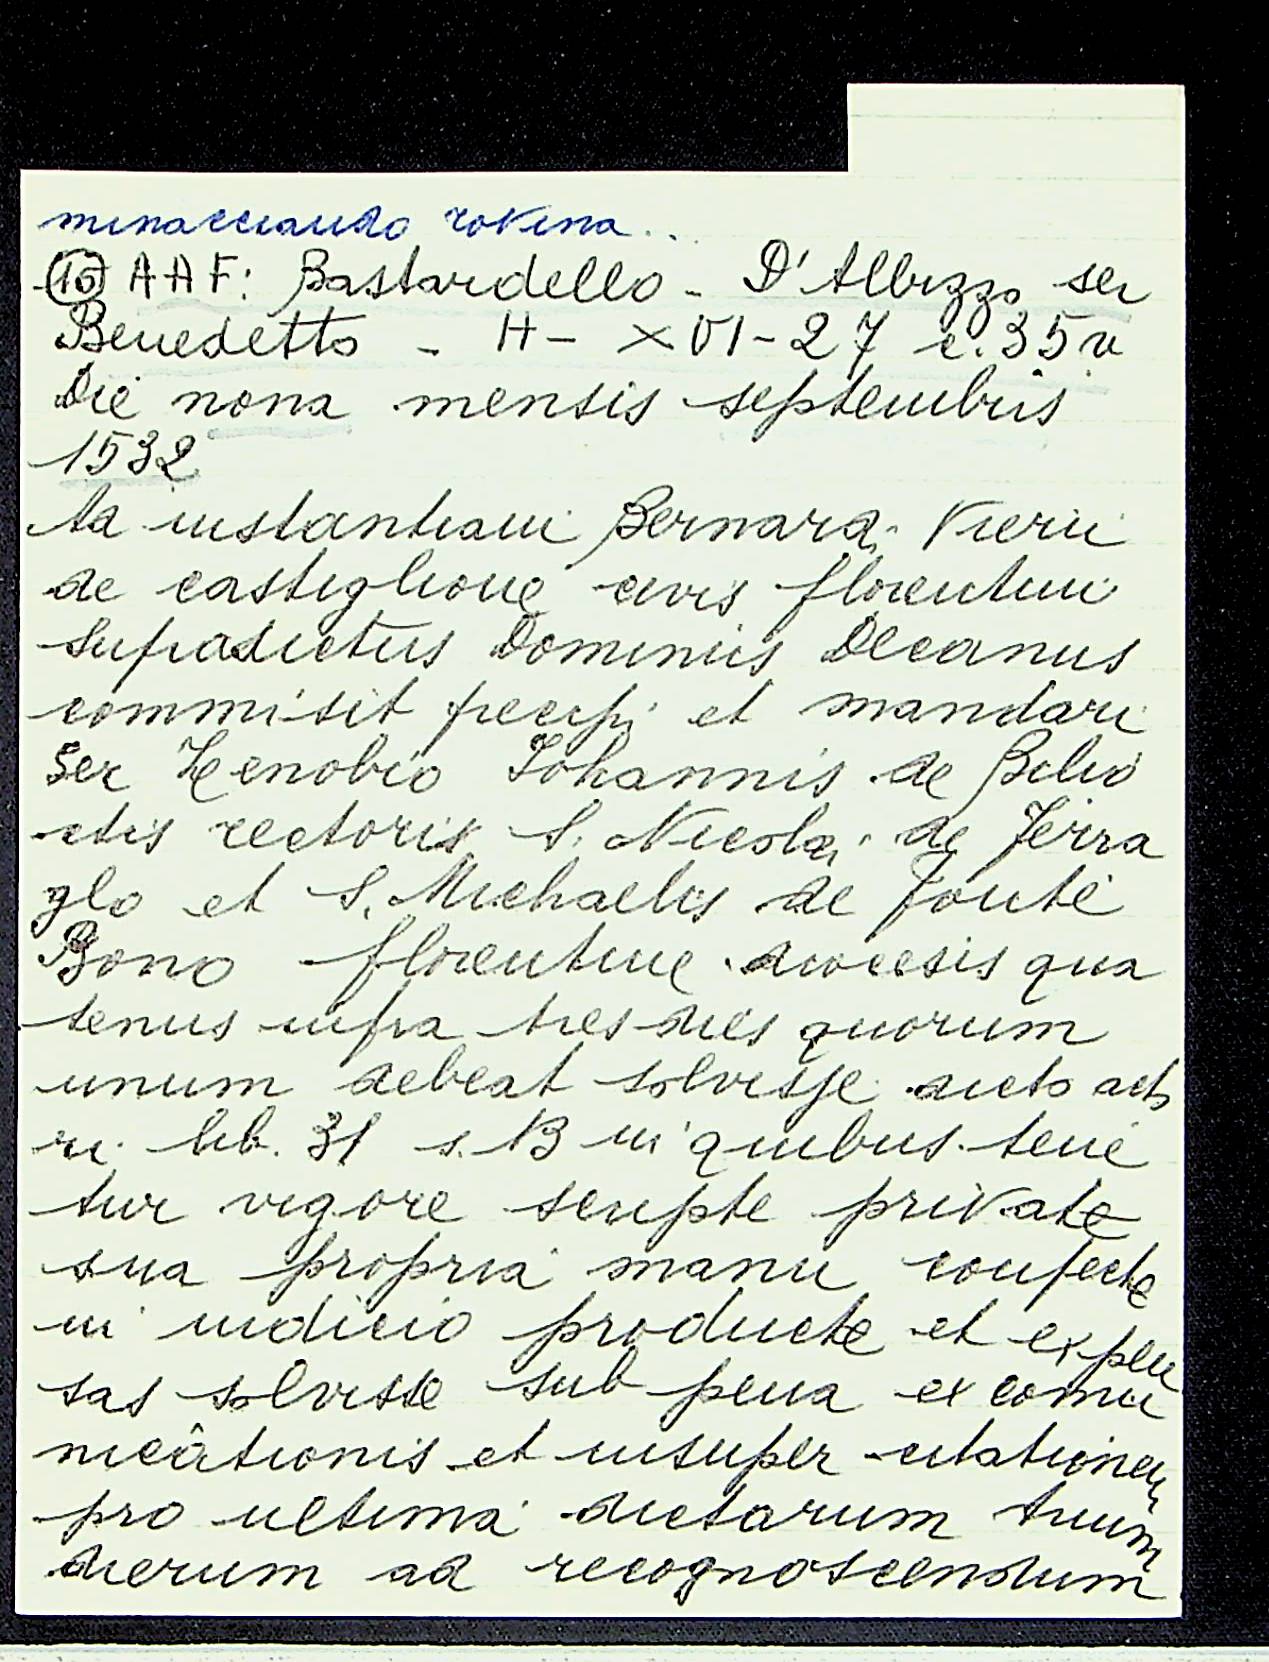 minacciando rovina...
(15) AAF: Bastardello - D'Albizzo ser
Benedetto - H - XVI - 27 c. 35v
Die nona mensis septembris
1532
Ad instantiam Bernardi Vierii
de castiglione civis florentini
supradictus Dominus Decanus
commisit precipi et mandari
Ser Zenobio Iohannis de Bilio
ctis rectoris S. Nicolai de Ferra
glo et S. Michaelis de Fonte
Bono florentine diocesis qua
tenus infra tres dies quorum
unum debeat solvisse dicto acto
ri lib. 31 s. 13 in quibus tene
tur vigore scripte private
sua propria manu confecte
in iudicio producte et expen
sas solvisse sub pena excomu
nicationis et insuper citationem
pro ultima dictarum trium
dierum ad recognoscendum